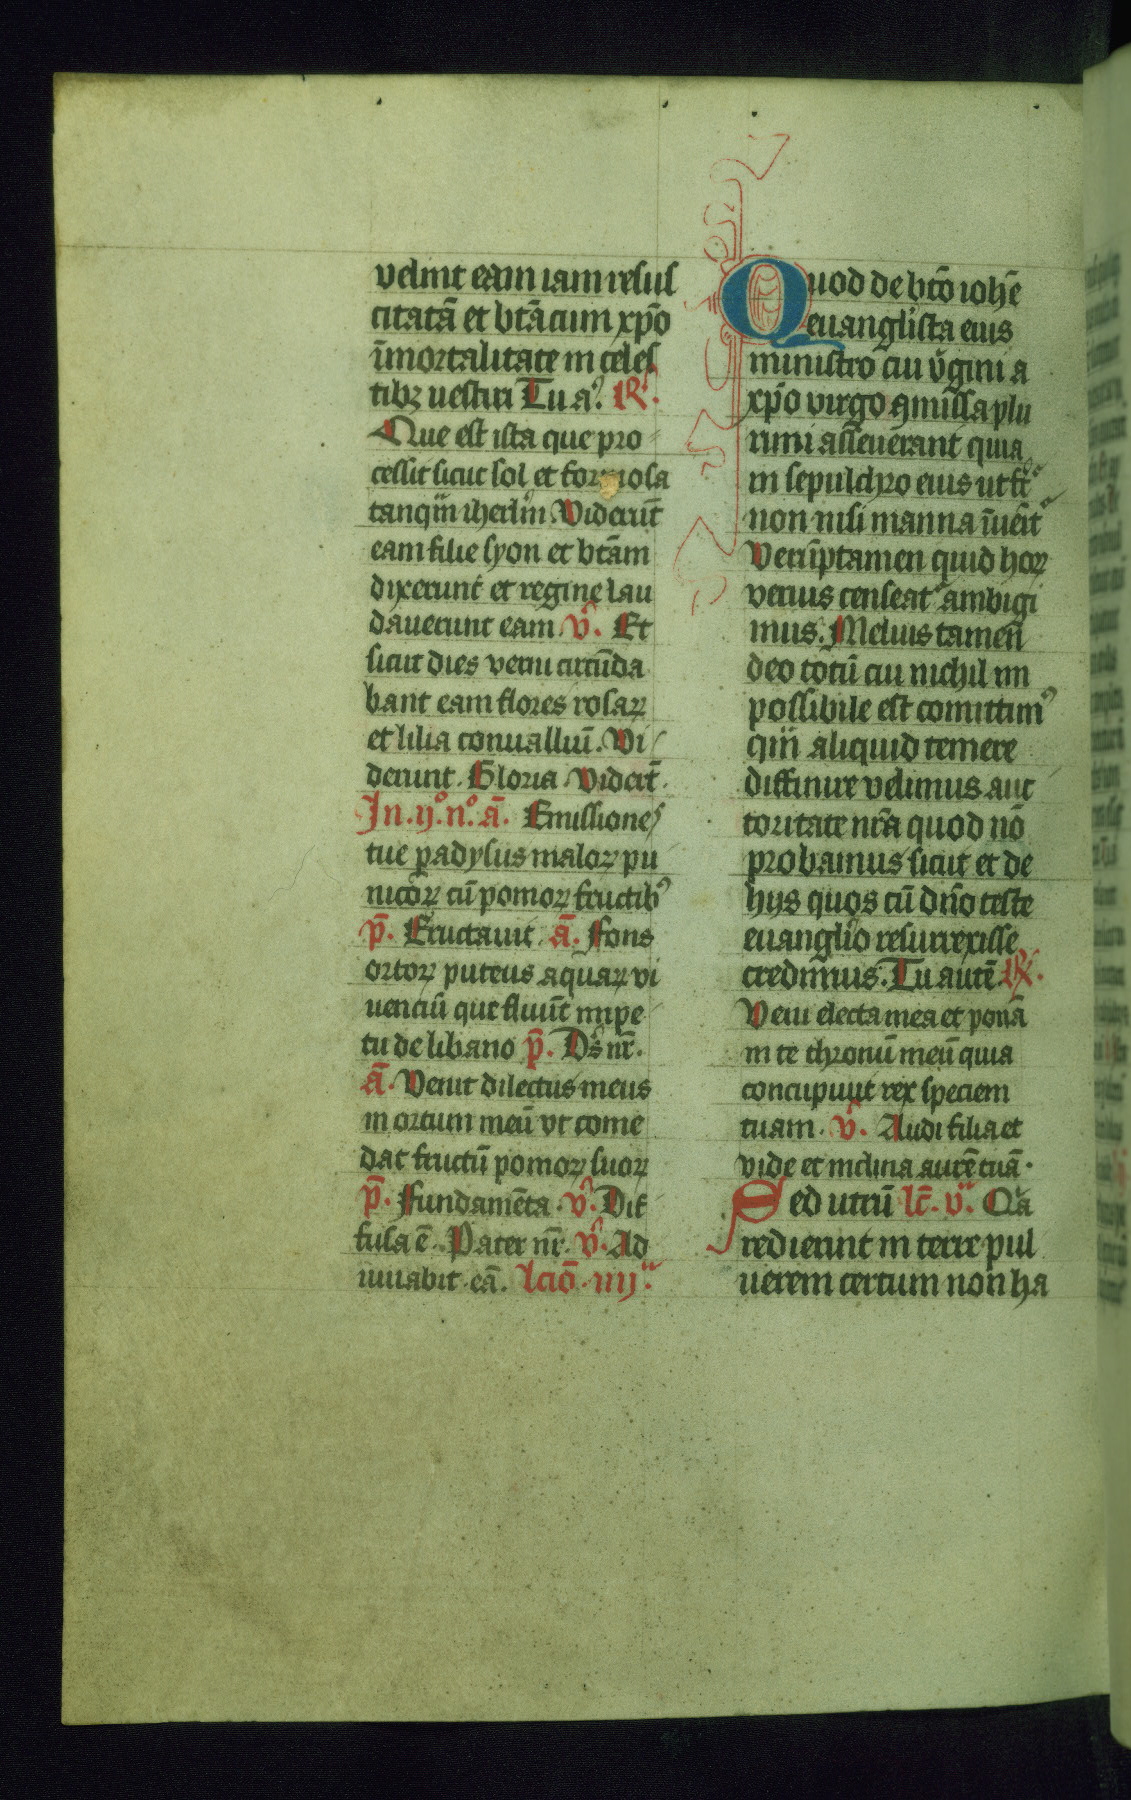 velint eam iam resus
citatā et btāa cum xp̄o
īmortalitate in celes
tibꝫ vestiri Tu aʼ. R̷.
Que est ista que pro
cessit sicut sol et formosa
tanqͥm iherlm̄ Viderūt
eam filie syon et btām
dixerunt et regine lau
daverunt eam v̄. Et
sicut dies verni circūda
bant eam flores rosaꝝ
et lilia convalliū. Vi
derunt. Gloria Vidert̄.
In .ijº. nº. ā. Emissiones
tue ꝑadysus maloꝝ pu
nicoꝝ cū pomoꝝ fructibꝰ
p̄. Eructavit ā. Fons
ortoꝝ puteus aquaꝝ vi
venciū que fluūt impe
tu de libano p̄. Dꝰs nr̄.
ā. Venit dilectus meus
in ortum meū vt come
dat fructū pomoꝝ suoꝝ
p̄. Fundamēta. v̄. Dif
fusa ē. Pater nr̄. v̄. Ad
iuvabit eā. Lcıō. iiijᵃ.
Quod de btō iohē
evangl̓ista eius
ministro cui v̓gini a
xp̄o virgo ꝯmissa plu
rimi asseverant quia
in sepulchro eius ut fr̄t
non nisi manna īvēit᷑
Verūptamen quid hoꝝ
verius censeat᷑ ambigi
mus. Melius tamen
deo totū cui nichil im
possibile est comittimꝰ
qͥm aliquid temere
diffinire velimus auc
toritate nr̄a quod nō
probamus sicut et de
hijs quos cū dn̄o teste
evangl̓io resurrexisse
credimus. Tu autē R̷.
Veni electa mea et ponā
in te thronū meū quia
concupivit rex speciem
tuam. v̄. Audi filia et
vide et inclina aurē tuā.
Sed utrū lc̄. vᵃ. Qͣa
redierint in terre pul
verem certum non ha